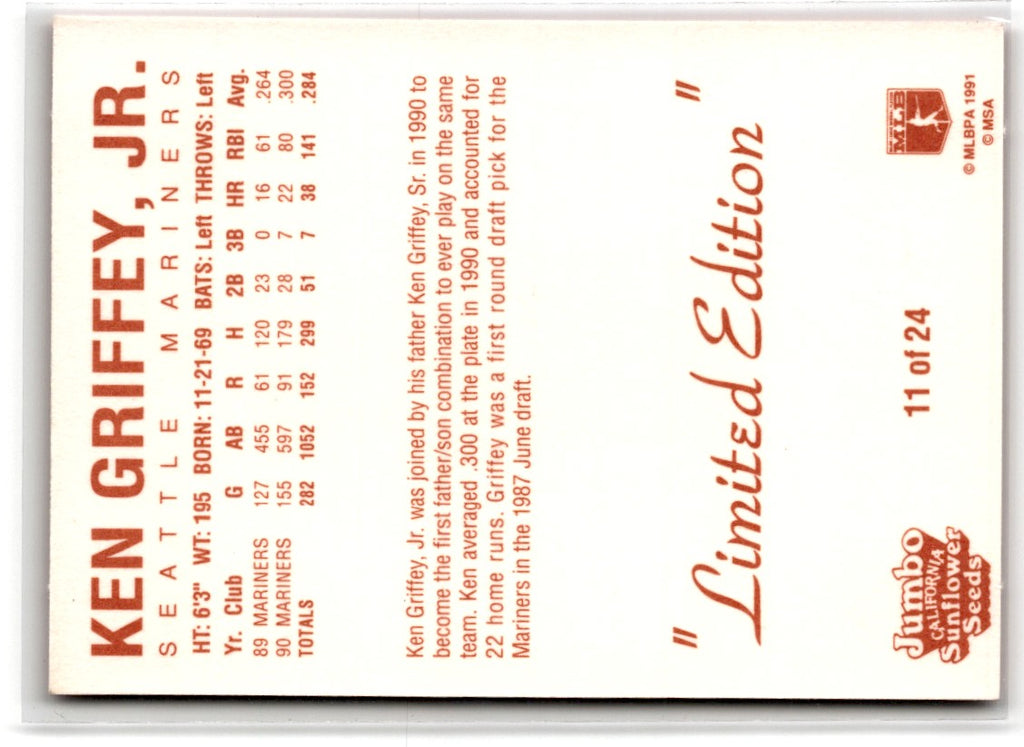 KEN GRIFFEY, JR.
SEATTLE MARINERS
HT: 6'3" WT: 195 BORN: 11-21-69 BATS: Left THROWS: Left
Yr. Club G AB R H 2B 3B HR RBI Avg.
89 MARINERS 127 455 61 120 23 0 16 61 .264
90 MARINERS 155 597 91 179 28 7 22 80 .300
TOTALS 282 1052 152 299 51 7 38 141 .284
Ken Griffey, Jr. was joined by his father Ken Griffey, Sr. in 1990 to
become the first father/son combination to ever play on the same
team. Ken averaged .300 at the plate in 1990 and accounted for
22 home runs. Griffey was a first round draft pick for the
Mariners in the 1987 June draft.
"Limited Edition"
Jumbo
CALIFORNIA
Sunflower
Seeds
11 of 24
MLB
© MLBPA 1991
© MSA